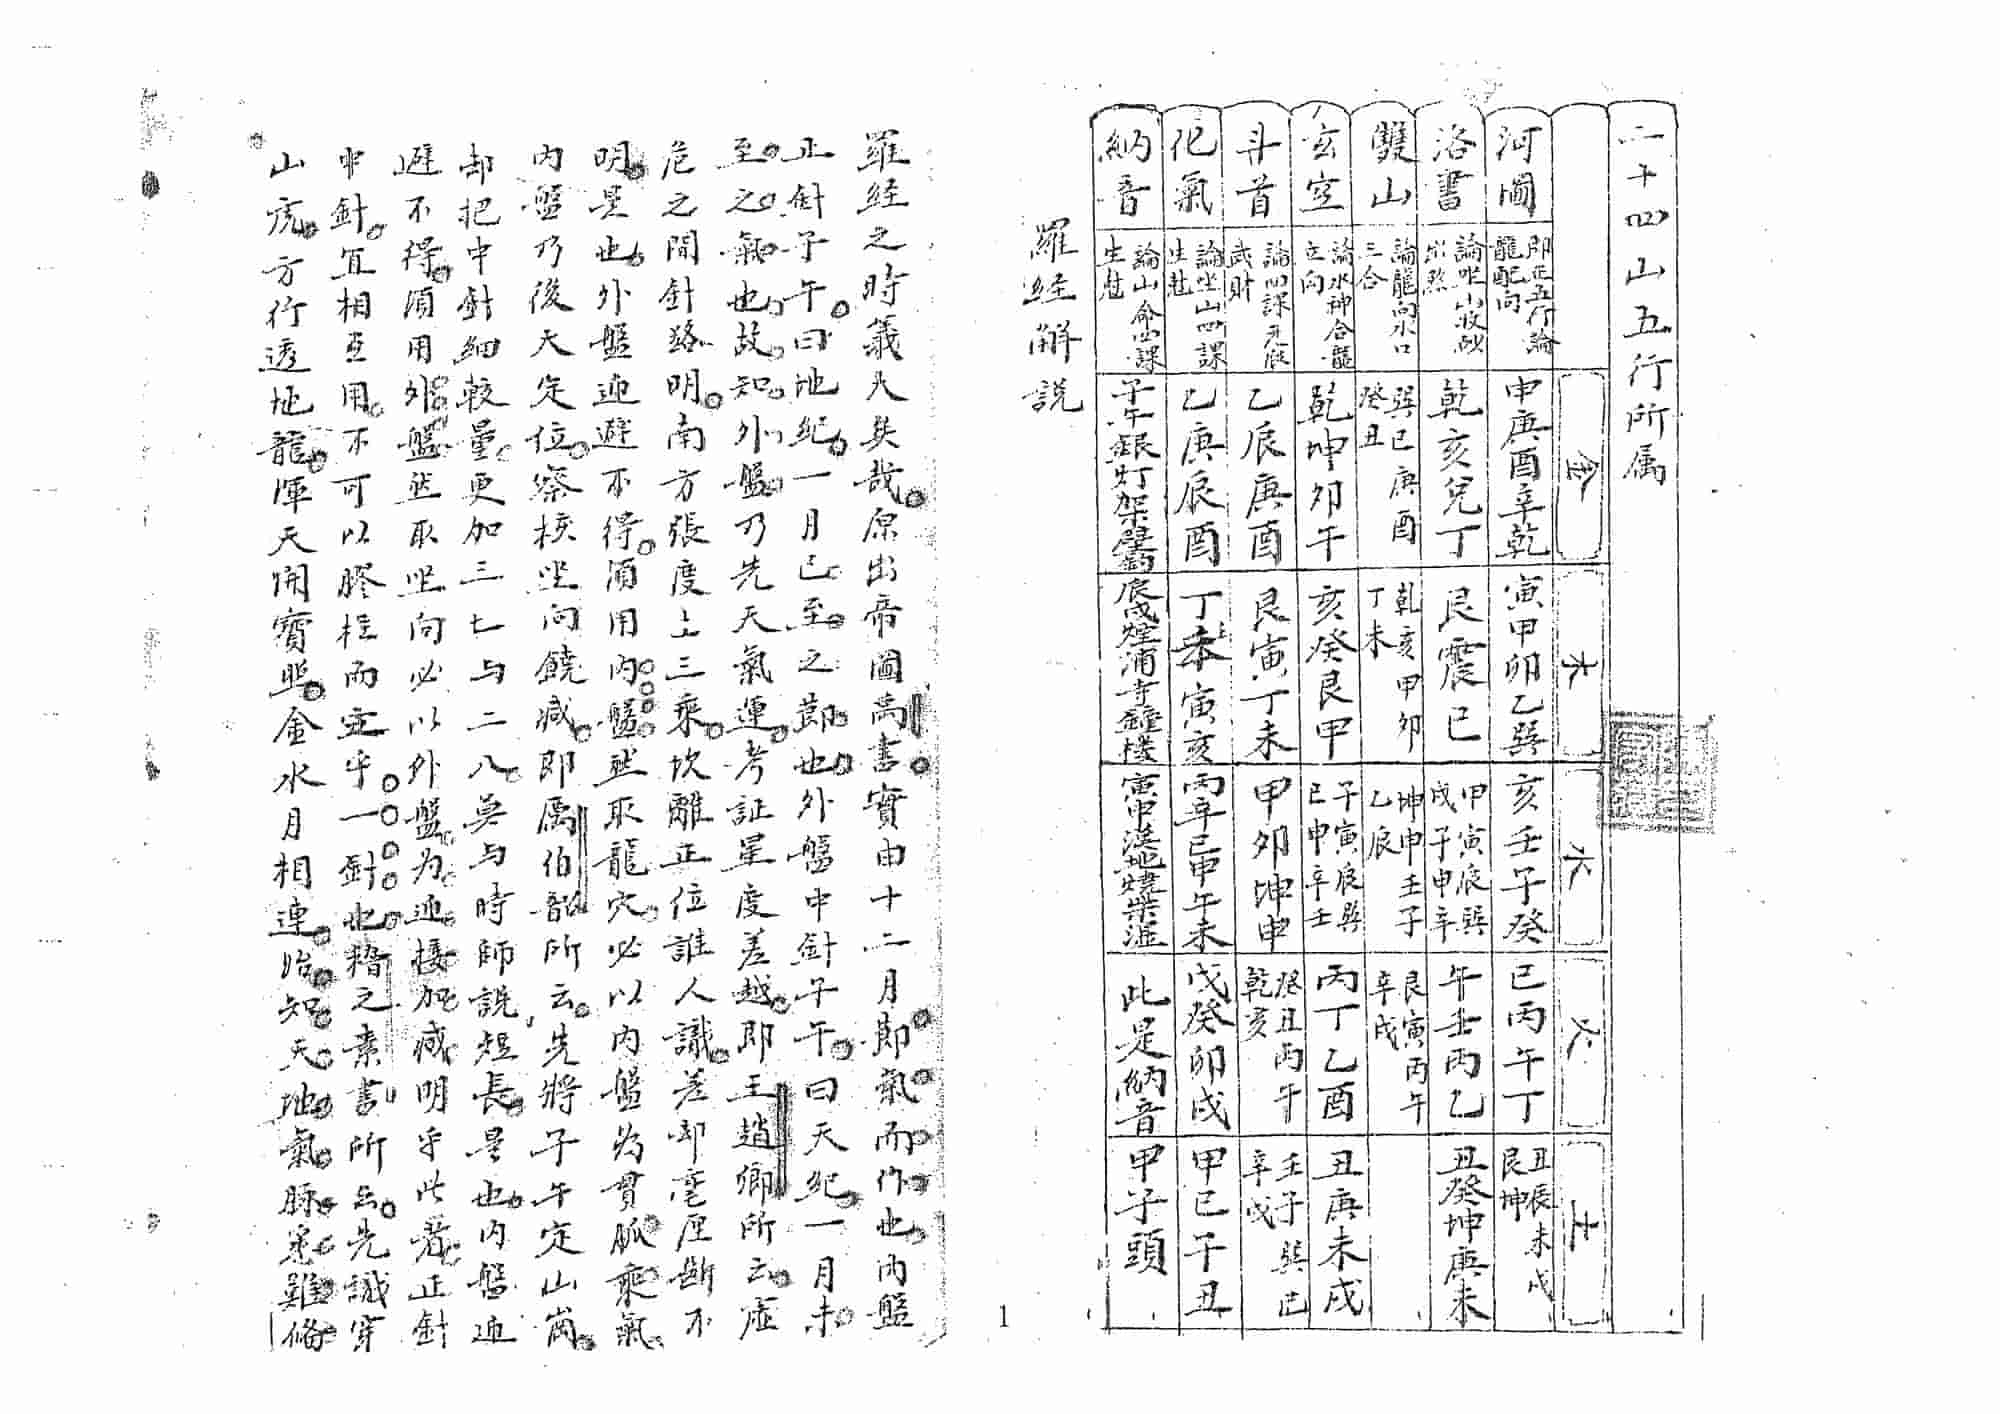 二十四山五行所属
金
木
水
火
土
河圖
即正五行論
龍配向
申庚酉辛乾
寅甲卯乙巽
亥壬子癸
巳丙午丁
丑辰未戌
艮坤
洛書
論坐山收砂
出煞
乾亥兌丁
艮震巳
甲寅辰巽
戌子申辛
午壬丙乙
丑癸坤庚未
雙山
論龍向水口
三合
巽巳庚酉
癸丑
乾亥甲卯
丁未
坤申壬子
乙辰
艮寅丙午
辛戌
玄空
論水神合龍
立向
乾坤卯午
亥癸艮甲
子寅辰巽
巳申辛壬
丙丁乙酉
丑庚未戌
斗首
論四課元辰
武財
乙辰庚酉
艮寅丁未
甲夘坤申
癸丑丙午
乾亥
壬子巽巳
辛戌
化氣
論坐山四課
生尅
乙庚辰酉
丁壬寅亥
丙辛巳申午未
戊癸卯戌
甲己干丑
納音
論山命四課
生尅
子午銀灯架壁鈎
辰戌煙滿寺鐘樓
寅申漢地燒柴溼
此是納音
甲子頭
羅経解説
羅経之時義大矣哉原出帝圖禹書實由十二月節氣而作也內盤
正針子午曰地紀一月已至之節也外盤中針子午曰天紀一月未
至之氣也故知外盤乃先天氣運考証星度差越即王趙卿所云虛
危之間針路明南方張度上三乘坎離正位誰人識差却毫厘断不
明是也外盤迎避不得須用內盤然取龍穴必以內盤為貫脈乘氣
內盤乃後天定位察核坐向饒减即厲伯韶所云先將子午定山崗
却把中針細較量更加三七与二八莫与時師説短長是也內盤迎
避不得須用外盤然取坐向必以外盤为迎接加减明乎此着正針
中針宜相互用不可以膠柱而定乎一針也稽之素書所云先識穿
山虎方行透地龍渾天開寶照金水月相連始知天地氣脉甚難偹
1